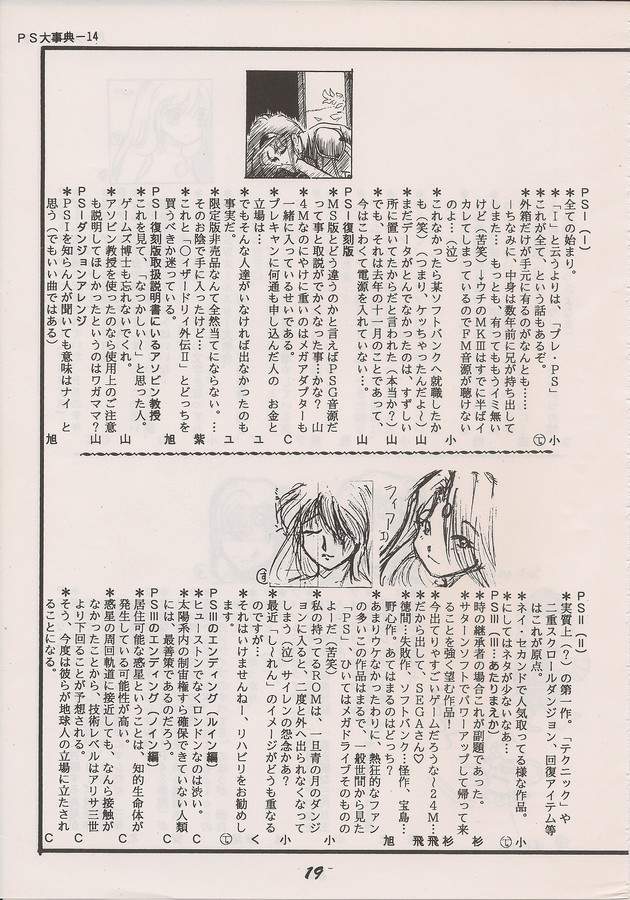 PS大事典－14
PSⅠ（Ⅰ）
＊全ての始まり。
＊「Ⅰ」と云うよりは、「プレ・PS」
＊これが全て、という話もあるぞ。　㋢小
＊外箱だけが手元に有るのがなんとも…
－ちなみに、中身は数年前に兄が持ち出して
しまた…　もっとも、有ってももうイミ無い
けど（苦笑）→ウチのMKⅢはすでに半ばイ
カレてしまっているのでFM音源が聴けない
のよ…（泣）　小
＊これなかったら某ソフトバンクへ就職したか
も（笑）（つまり、ケッちゃったんだよ～）山
＊まだデータがとんでなかったのは、すずしい
所に置いてたからだと言われた（本当か？）山
＊でも、それは去年の十一月のことであって、
今はこわくて電源を入れていない…。　山
PSⅠ復刻版
＊MS版とどう違うのかと言えばPSG音源だ
って事と取説がでかくなった事…かな？　山
＊4Mなのにやけに重いのはメガアダプターも
一緒に入っているせいである。　C
＊プレキャンに何通も申し込んだ人の　お金と
立場は…　ユ
＊でもそんな人達がいなければ出なかったのも
事実だ。　ユ
＊限定版非売品なんて全然当てにならない。…
そのお陰で手に入ったけど…　紫
＊これと「〇ィザードリィ外伝Ⅱ」とどっちを
買うべきか迷っている。　旭
PSⅠ復刻版取扱説明書にいるアソビン教授
＊これを見て、「なつかしい～」と思った人。
ゲームズ博士も忘れないでくれ。　山
＊アソビン教授を使ったのなら使用上のご注意
も説明してほしかったというのはワガママ？山
PSⅠダンジョンアレンジ
＊PSⅠを知らん人が聞いても意味はナイ　と
思う（でもいい曲ではある）　旭
ライア
PSⅡ（Ⅱ）
＊実質上（？）の第一作。「テクニック」や
二重スクロールダンジョン、回復アイテム等
はこれが原点。　小
＊ネイ・セカンドで人気取ってる様な作品。
にしてはネタが少ないなあ…　㋢
PSⅢ（Ⅲ…あたりまえか）
＊時の継承者の場合これが副題であった。　杉
＊サターンソフトでパワーアップして帰って来
ることを強く望む作品！　杉
＊今出てりゃすごいゲームだろうな～24M…飛
＊だから出して、SEGAさん♡　飛
＊徳間…失敗作、ソフトバンク…怪作、宝島…
野心作。あてはまるのはどっち？　旭
＊あまりウケなかったわりに、熱狂的なファン
の多いこの作品はまるで、一般世間から見た
「PS」、ひいてはメガドライブそのものの
よーだ（苦笑）　小
＊私の持ってるROMは、一旦青の月のダンジ
ョンに入ると、二度と外へ出られなくなって
しまう（泣）サイレンの怨念かあ？　小
＊最近「し～れん」のイメージがどうも重なる
のですが…　く
＊それはいけませんねー、リハビリをお勧めし
ます。　㋢
PSⅢのエンディング（ルイン編）
＊ヒューストンでなくロンドンなのは渋い。　C
＊太陽系内の制宙権すら確保できていない人類
には、最善策であるのだろう。　C
PSⅢのエンディング（ノイン編）
＊居住可能な惑星ということは、知的生命体が
発生している可能性が高い。　C
＊惑星の周回軌道に接近しても、なんら接触が
なかったことから、技術レベルはアリサ三世
より下回ることが予想される。　C
＊そう、今度は彼らが地球人の立場に立たされ
ることになる。　C
19